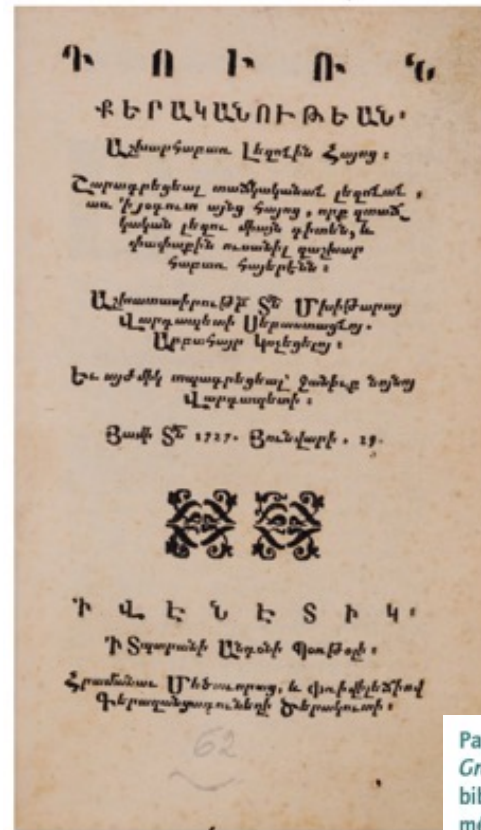 ԴՈՒՌՆ
ՔԵՐԱԿԱՆՈՒԹԵԱՆ։
Աշխարհաբառ Լեզուին Հայոց ։
Շարագրեցեալ տաճկականաւ լեզուաւ ,
առ ՚ի յօգուտ այնց հայոց , որք զտաճ֊
կական լեզու միայն գիտեն, և
փափաքին ուսանիլ զաշխար
հաբառ հայերէնն ։
Աշխատասիրութ՟բ Տ՟ն Մխիթարայ
Վարդապետի Սեբաստացւոյ.
Աբբահայր կոչեցելոյ ։
Եւ այժմիկ տպագրեցեալ՝ ջանիւք նոյնոյ
Վարդապետի ։
Յամի Տ՟ն 1727. Յունվարի . 29.
՚Ի ՎԷՆԷՏԻԿ։
՚Ի Տպարանի Անդօնի Պօռթօլի ։
Հրամանաւ Մեծաւորաց, և փռիվիլեճիով
Գերազանցագունեղի Ծերակուտի ։
62
Pa
Gr
bib
mé